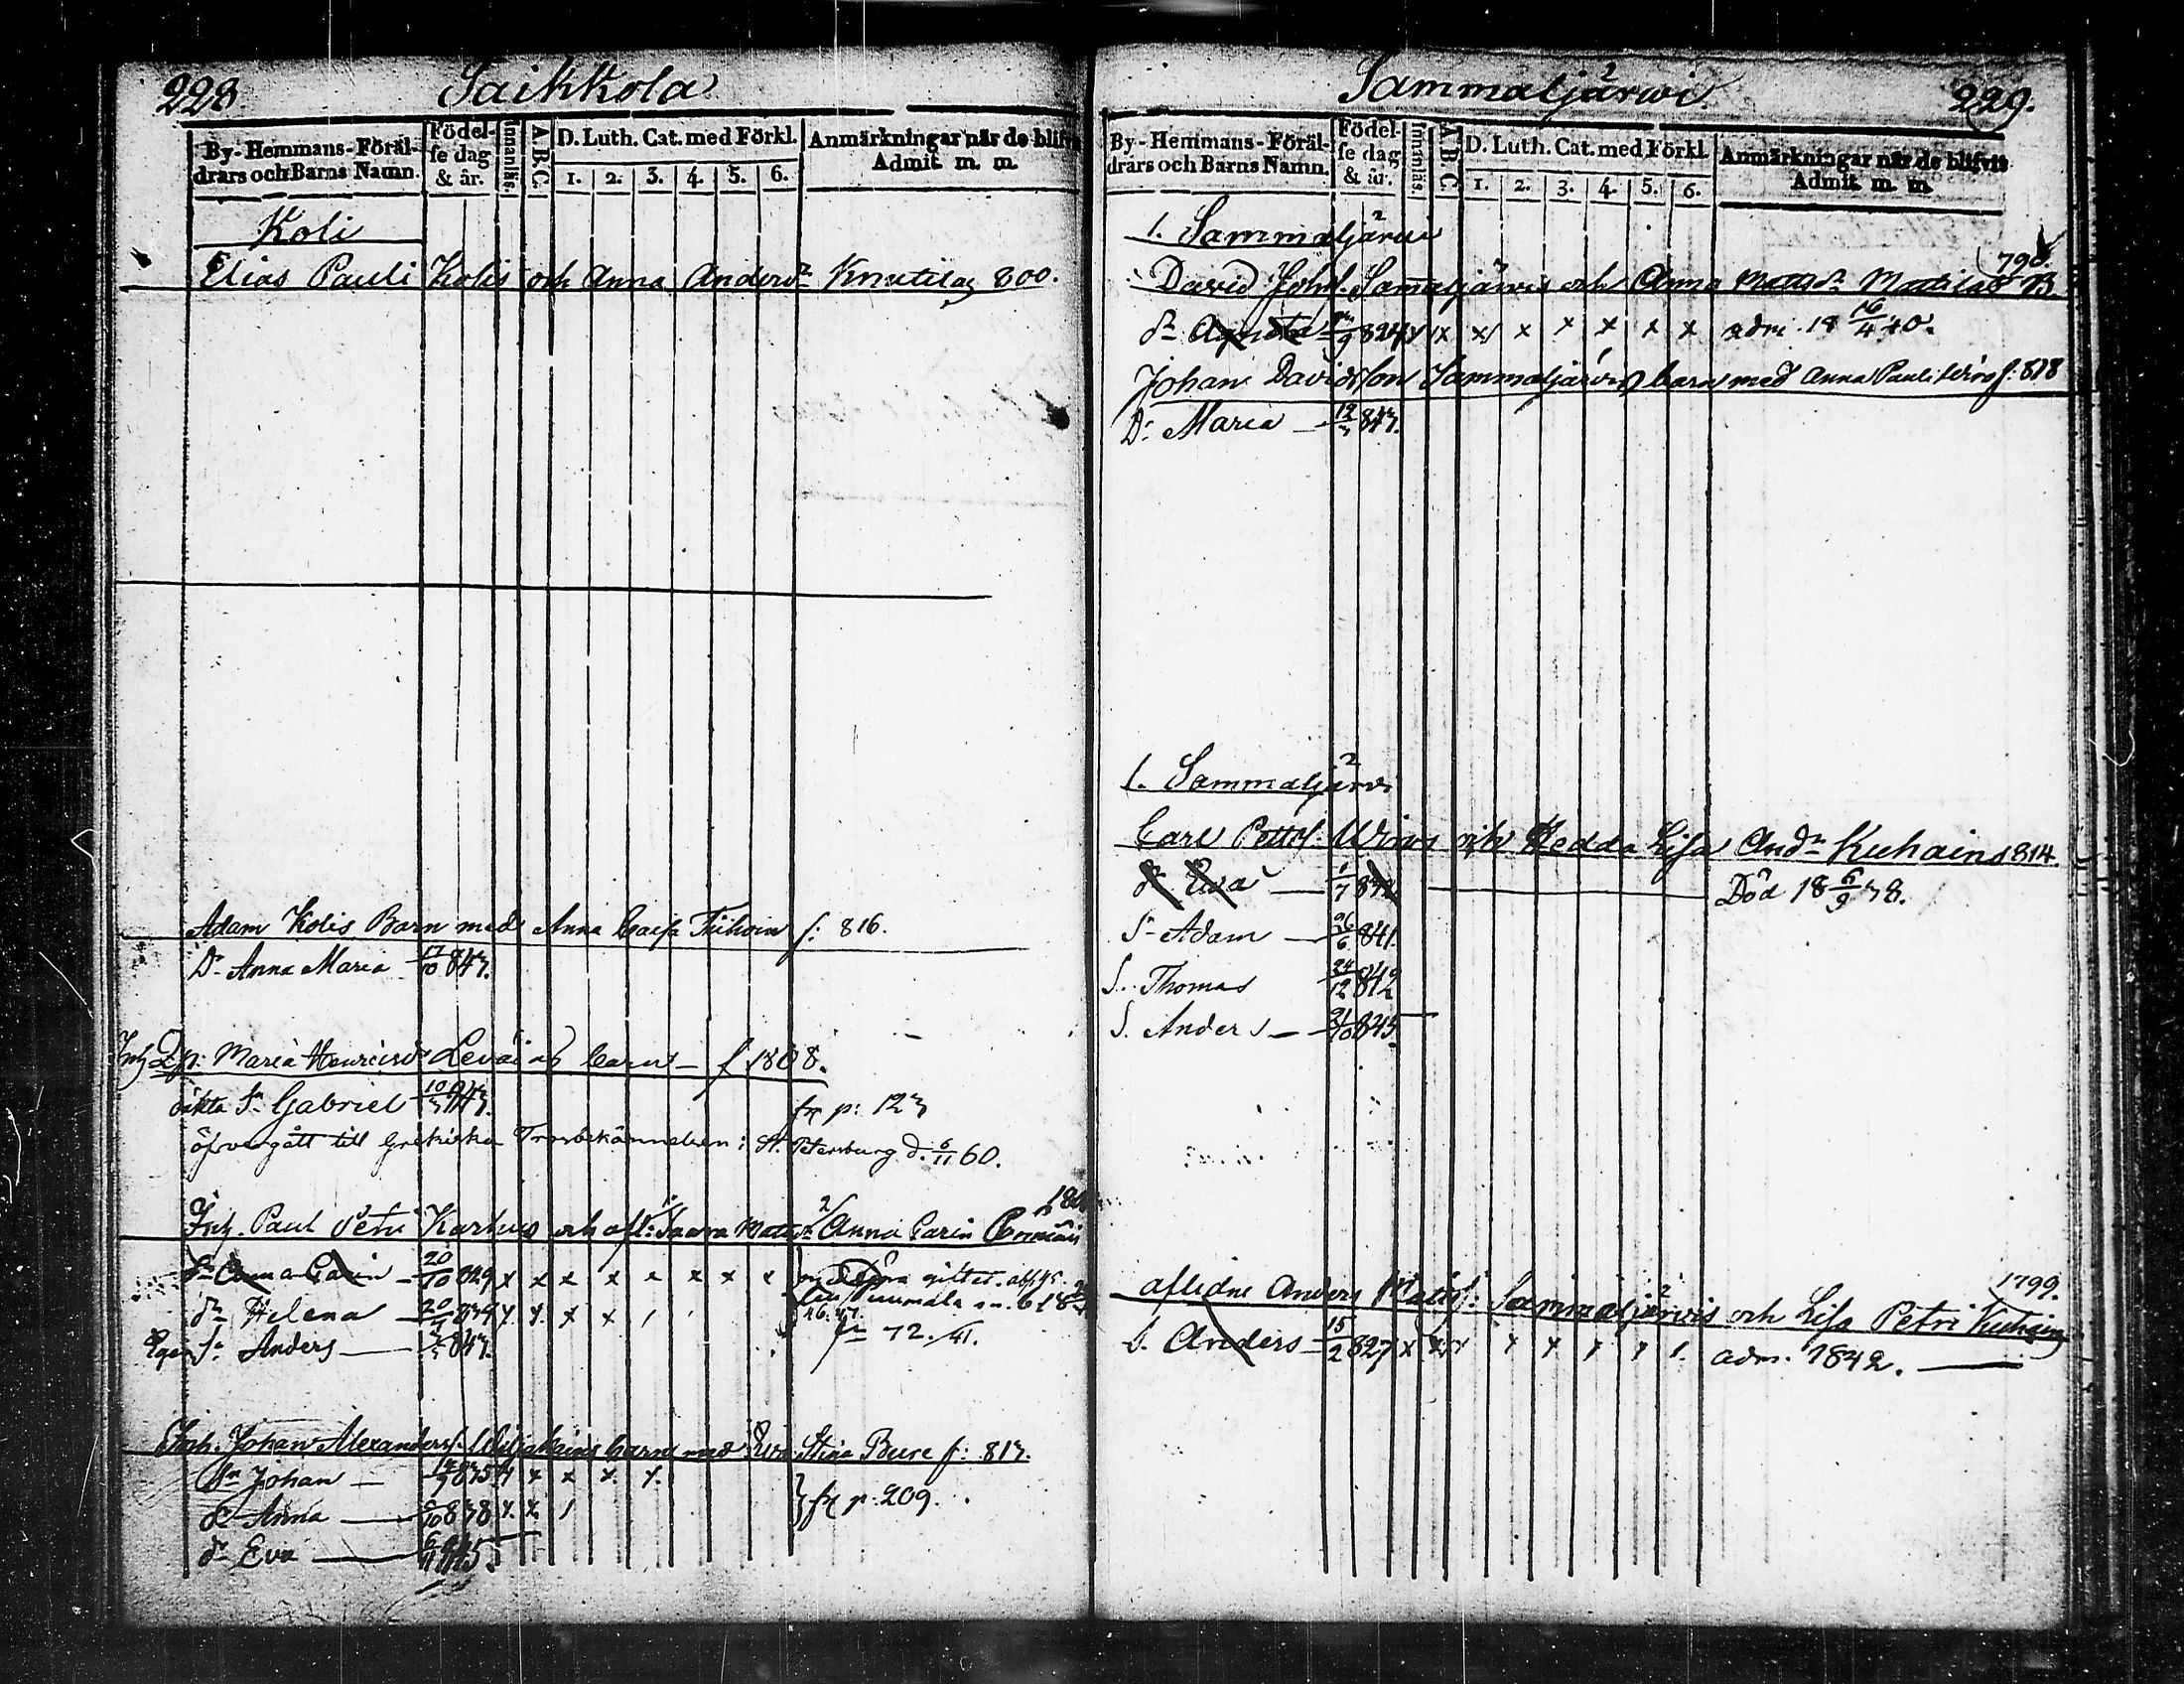 228. Saikkola
By-Hemmans-Föräl-
drars och Barns Namn.
Födel-
se dag
& år.
Innanläs.
A.B.C.
D. Luth. Cat. med Förkl.
1. 2. 3. 4. 5. 6.
Anmärkningar när de blifvit
Admit. m. m.
Koli
Elias Pauli Kolis och Anna Andersdr Knutilas 800.
Adam Kolis Barn med Anna Caisa Tiihoin f: 816.
Dr Anna Maria 17/10 847.
Maria Henricsdr barn f 1808.
oäkta Sn Gabriel 10/3 843. p: 123
öfvergått till Grekiska Trosbekännelsen i St. Petersburg d. 6/11 60.
Inh. Paul Petri Karhus och afl: 1/ Saara Mattsdr 2/ Anna Carin
dr Anna Carin 20/10 829 x x x x x x x x
dr Helena 839 x x x x / /
Sn Anders 843. 72./41.
Johan Alexanders. barn med Stina Bure f: 813.
Sn Johan — 835 x x x x x
dr Anna — 838 x x / } p. 209.
dr Eva — 6/11 845
Sammaljärwi 229.
By-Hemmans-Föräl-
drars och Barns Namn.
Födel-
se dag
& år.
Innanläs.
A.B.C.
D. Luth. Cat. med Förkl.
1. 2. 3. 4. 5. 6.
Anmärkningar när de blifvit
Admit. m. m.
1. Sammaljärwi
798.
David Joh. Sammaljärwis och Anna Mattsdr Mattilas B.
dr Agneta 824 x x x x x x x x adm. 18 16/4 40.
Johan Davidsson Sammaljärvis barn med Anna Pauli f: 818
Dr Maria — 12/3 843.
1. Sammaljärvi
Carl Petters. och Hedda Lisa Andr Kuhains 814.
dr Eva — 1/7 Död 18 6/9 38.
Sn Adam — 26/6 841.
S. Thomas 24/12 842
S. Anders — 21/10 845.
1799.
aflidne Anders Matts: Sammaljärwis och Lisa Petri Kuhains
S. Anders — 15/2 827 x x x x x x x adm. 1842.